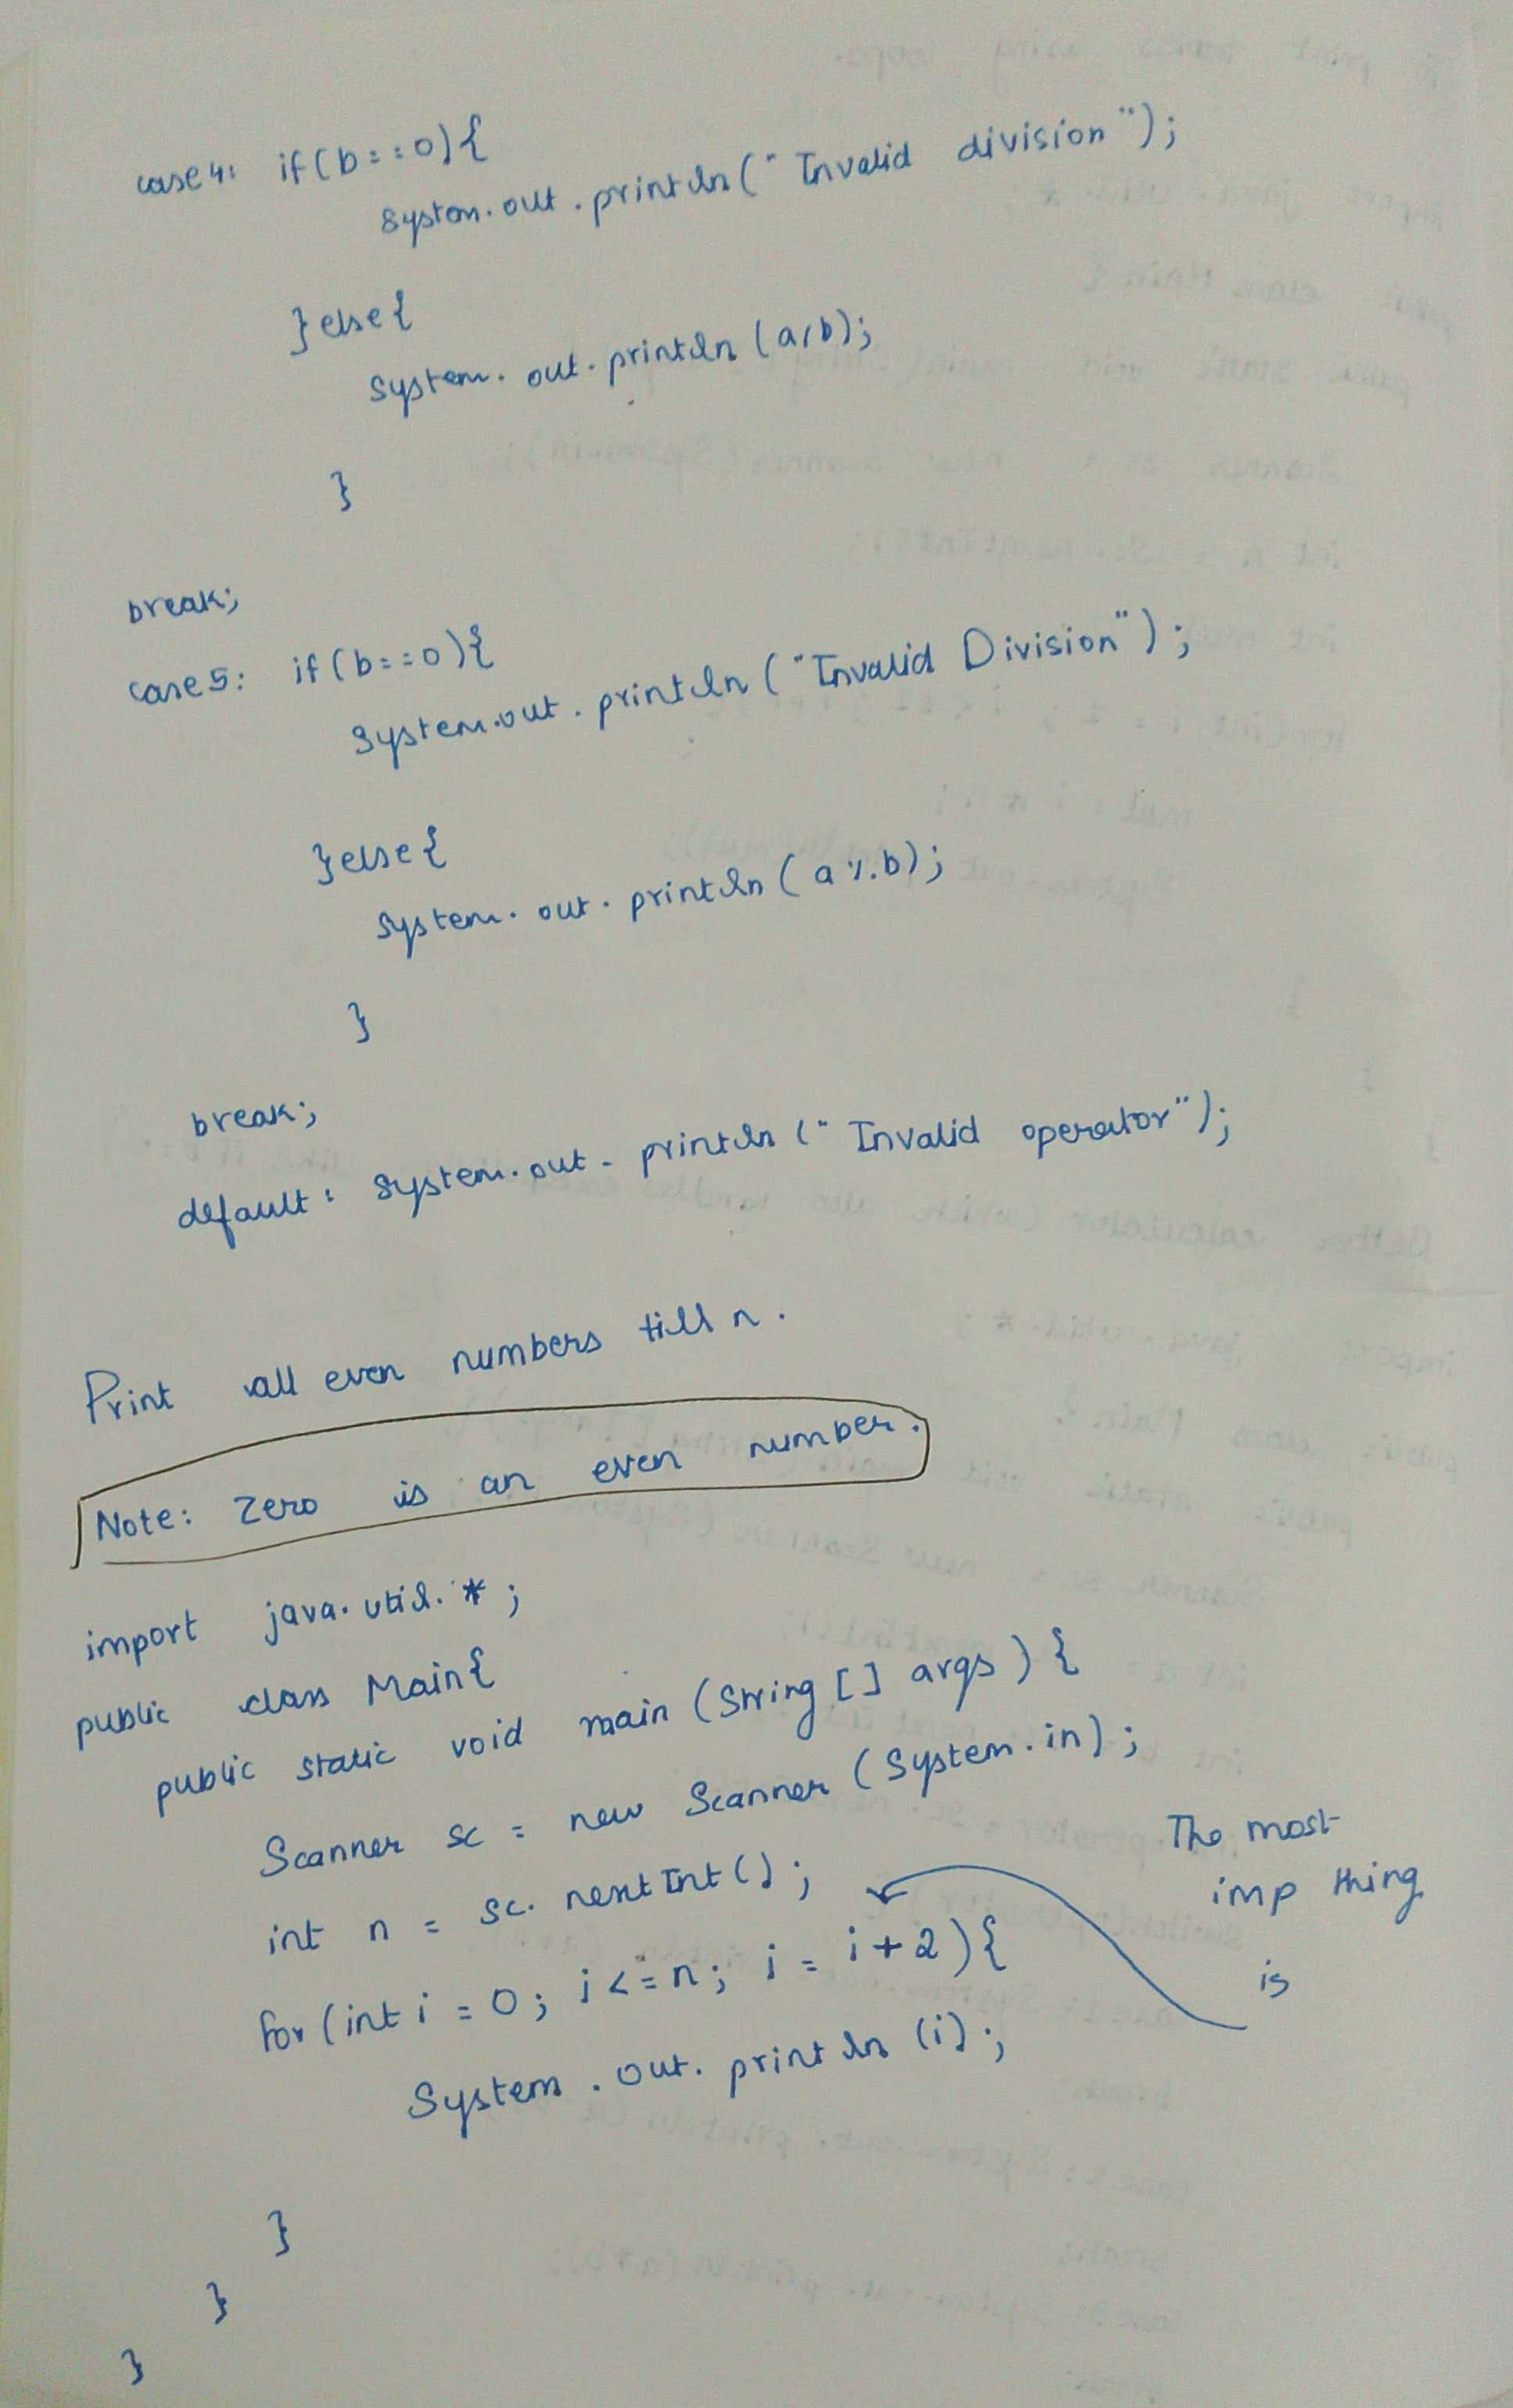 case 4: if(b==0){
System.out.println("Invalid division");
}else{
System.out.println(a/b);
}
break;
case 5: if(b==0){
System.out.println("Invalid Division");
}else{
System.out.println(a%b);
}
break;
default: System.out.println("Invalid operator");
Print all even numbers till n.
Note: Zero is an even number.
import java.util.*;
public class Main{
public static void main (String [] args) {
Scanner sc = new Scanner (System.in);
int n = sc.nextInt();
The most
imp thing
is
for (int i = 0; i <= n; i = i+2){
System.out.println(i);
}
}
}